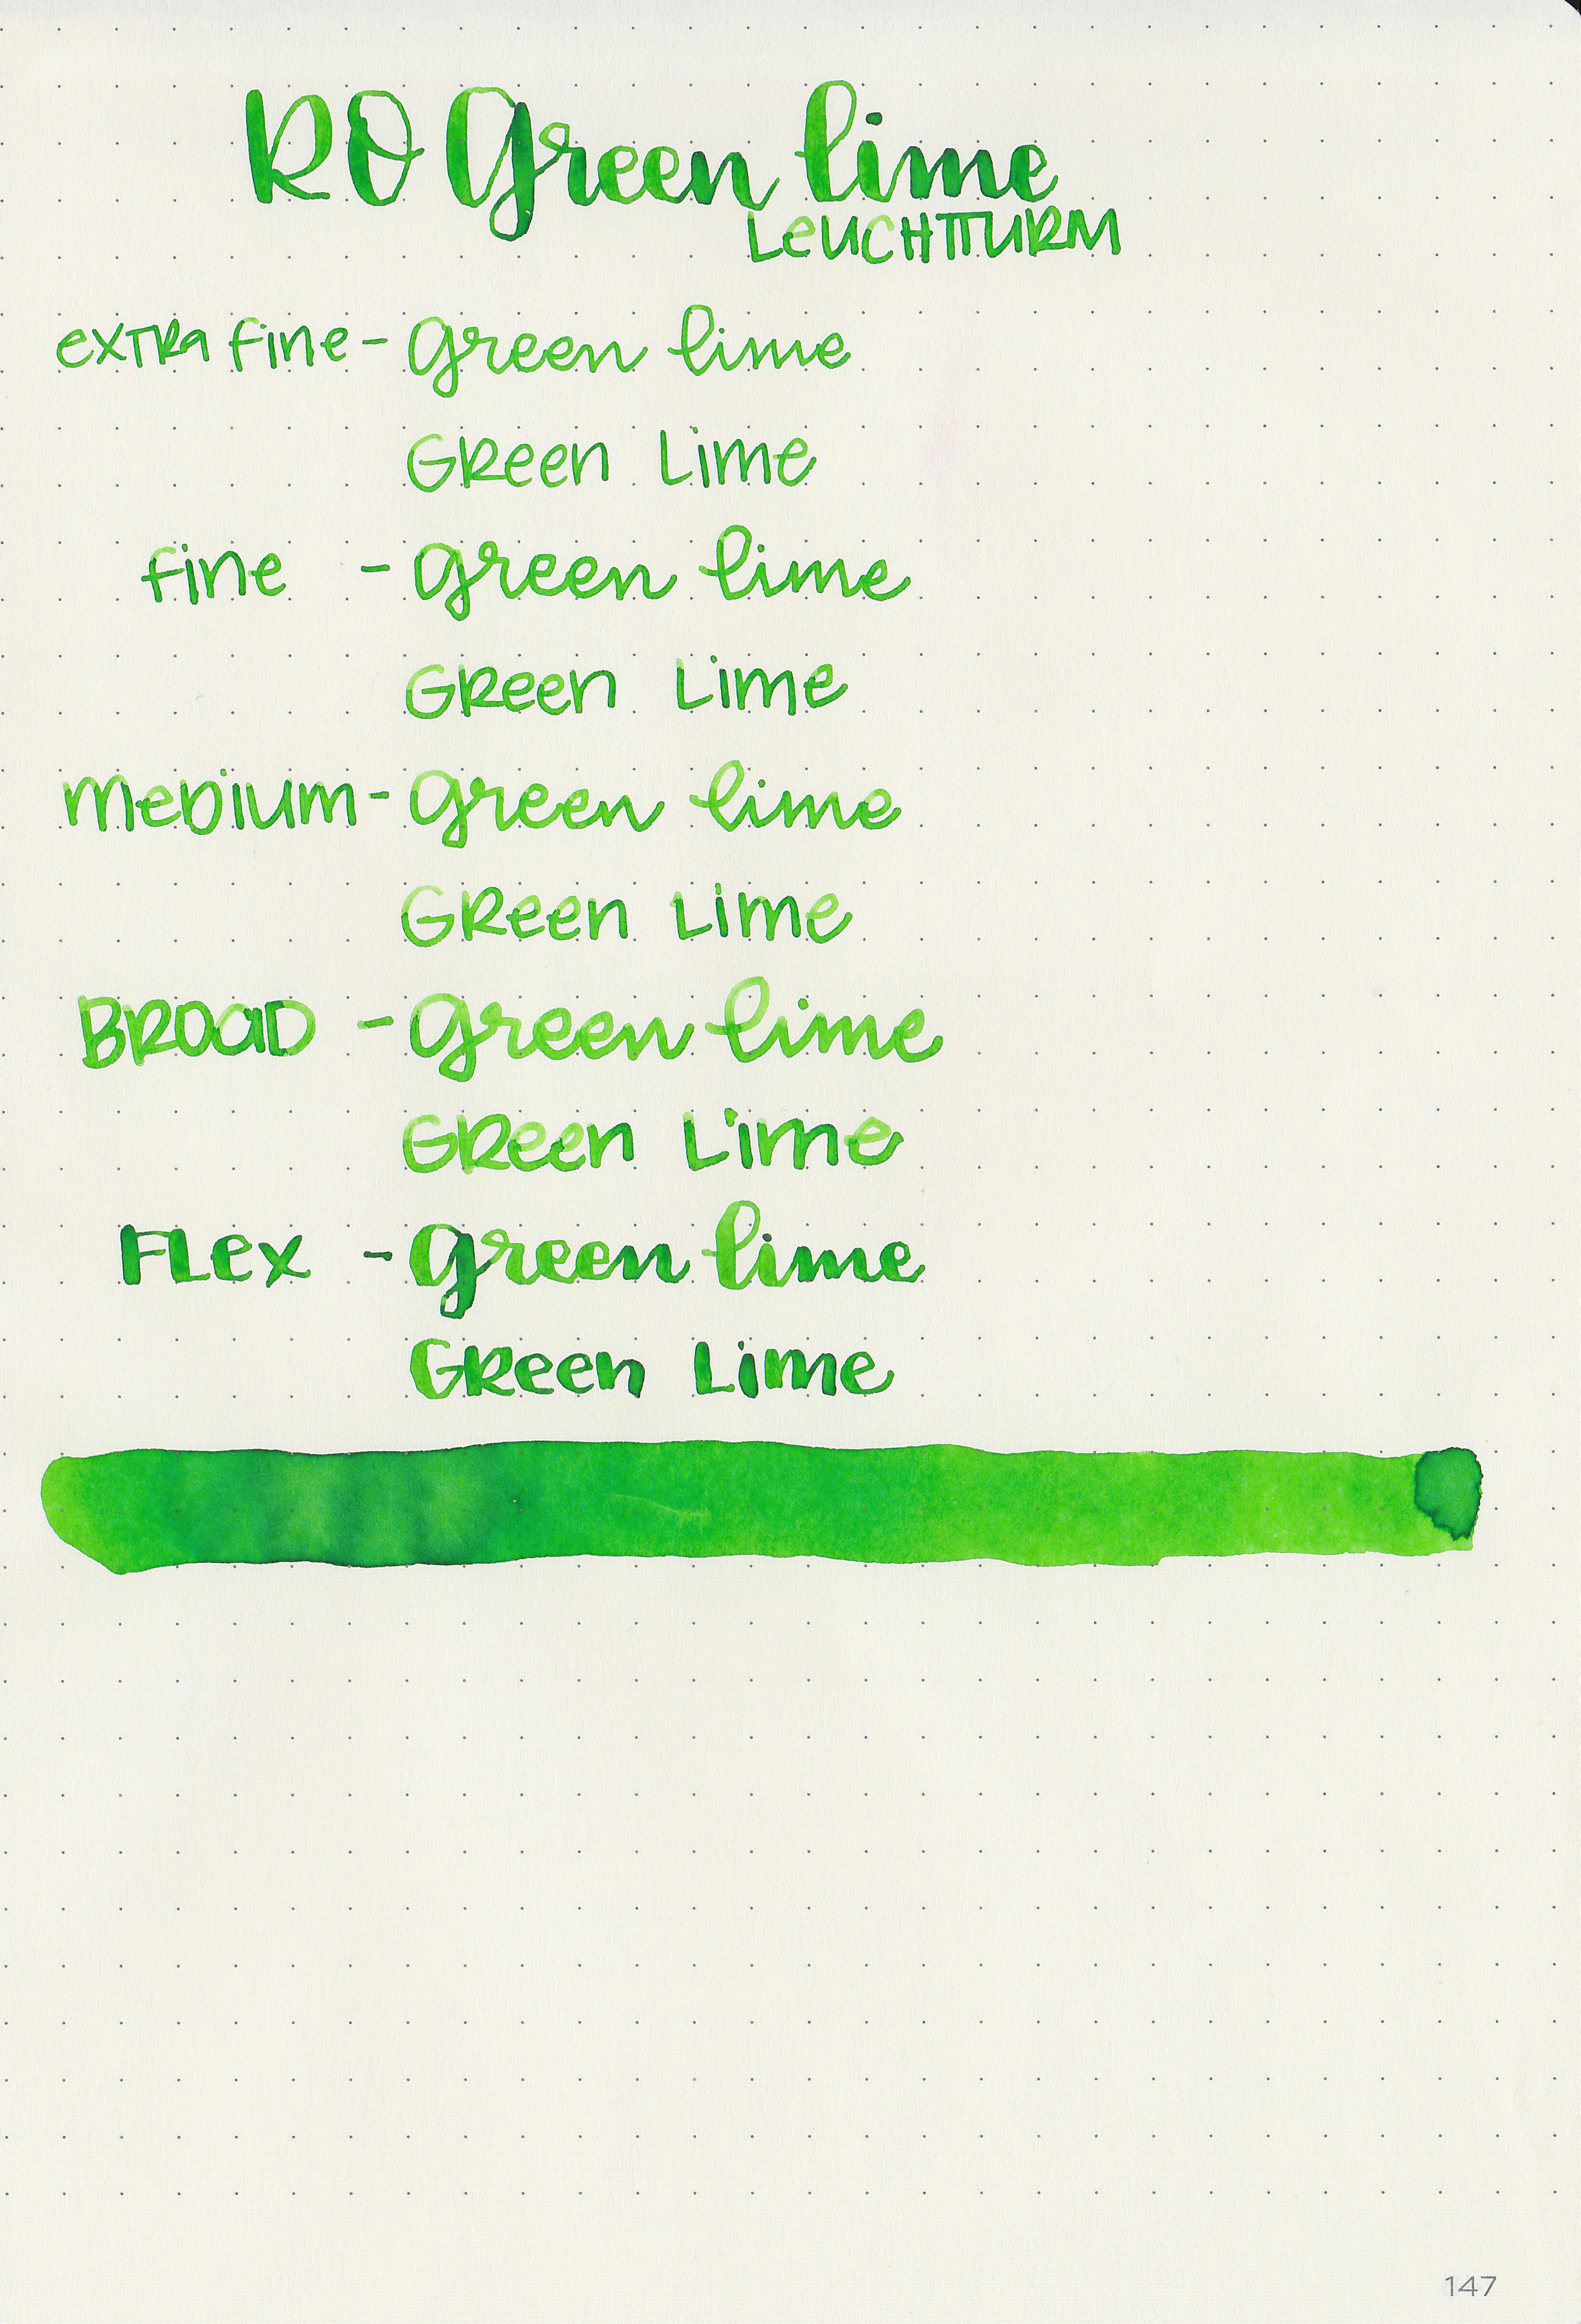 RO Green lime
LeUCHTTURM
eXTRa fine - green lime
GReen Lime
fine - green lime
GReen Lime
meDIUm - green lime
GReen Lime
BROaD - green lime
GReen Lime
FLex - green lime
GReen Lime
147